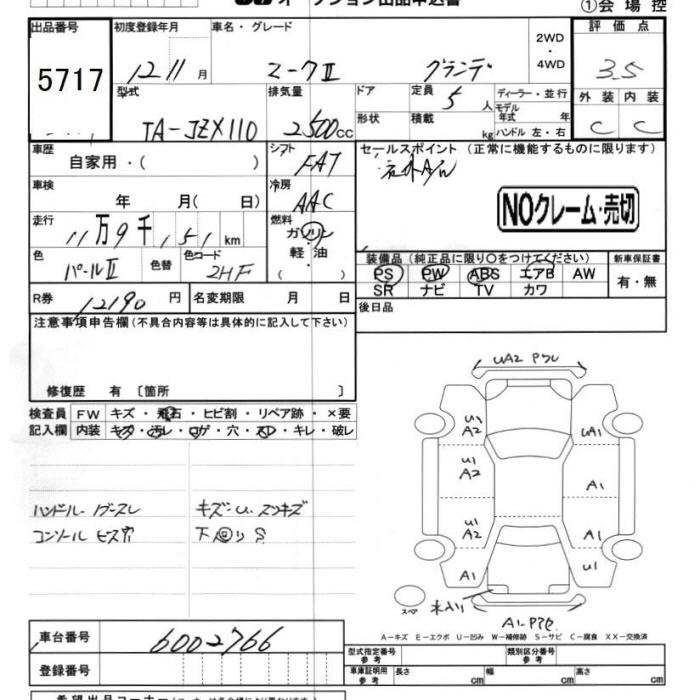 オークション出品申込書
①会場控
出品番号 初度登録年月 車名・グレード 2WD・4WD 評価点
5717 12 11 月 マークⅡ グランデ 3.5
型式 排気量 ドア 定員 5 人 ディーラー・並行 外装 内装
TA-JZX110 2500 cc 形状 積載 kg モデル年式 年 ハンドル 左・右 C C
車歴 シフト FAT セールスポイント (正常に機能するものに限ります)
自家用・( )
車検 冷房 AAC
年 月( 日)
NOクレーム・売切
走行 11万9千151 km 燃料 ガソリン・軽・油 ( )
色 パールⅡ 色替 色コード 2HF
装備品(純正品に限り○をつけてください) 新車保証書
PS PW ABS エアB AW 有・無
SR ナビ TV カワ
R券 12190 円 名変期限 月 日 後日品
注意事項申告欄(不具合内容等は具体的に記入して下さい)
修復歴 有 〔箇所 〕
検査員 FW キズ・飛石・ヒビ割・リペア跡・×要
記入欄 内装 キズ・汚レ・コゲ・穴・スレ・キレ・破レ
ハンドル・ノブスレ キズ・U.スリキズ
コンソール ビス穴 下回りS
UA2 Pフレ
U1 A2 UA1
U1 A2 A1
U1 A2 A1
A1 U1
スペア 水入り
A1・P
A-キズ E-エクボ U-凹み W-補修跡 S-サビ C-腐食 XX-交換済
車台番号 6002766
登録番号
型式指定番号 参考 類別区分番号 参考
車庫証明用 参考 長さ cm 幅 cm 高さ cm
希望出品コーナー